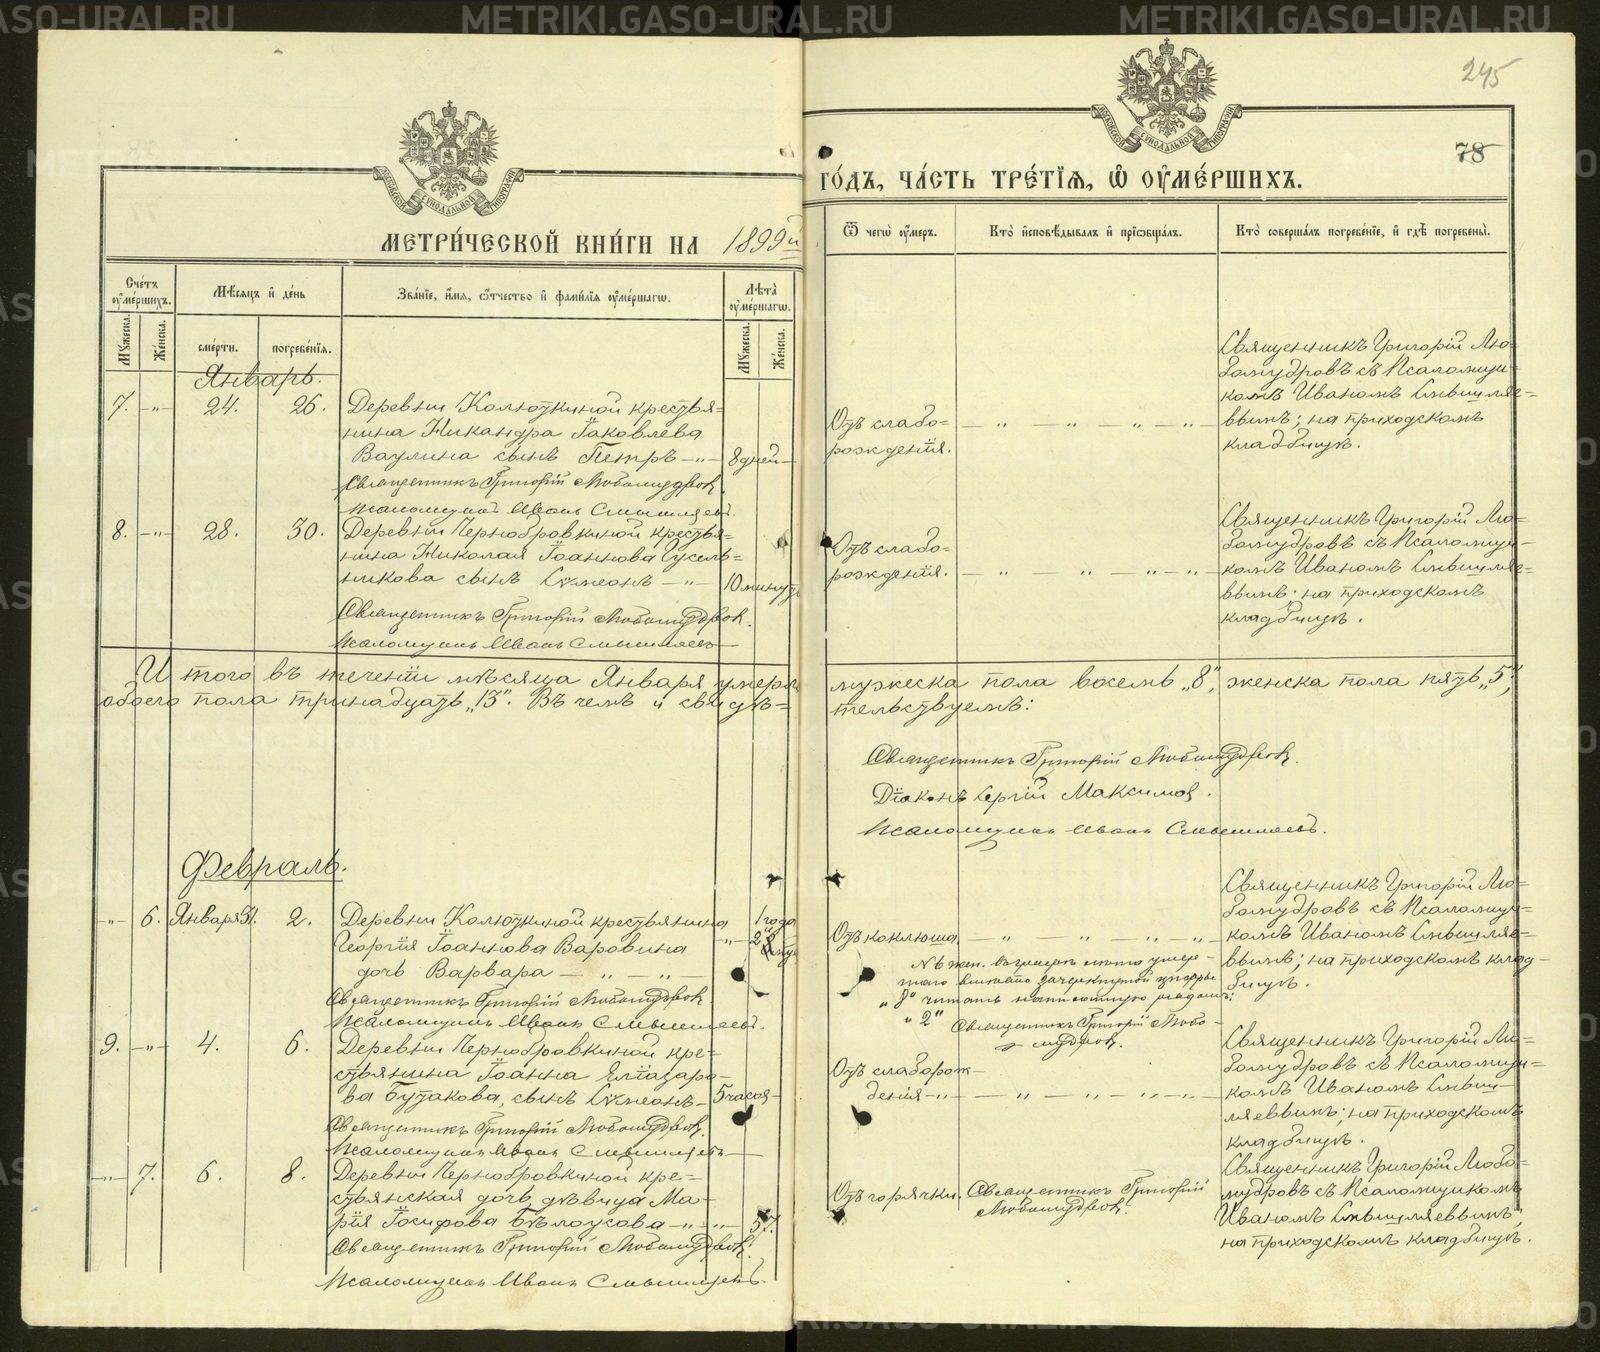 METRIKI.GASO-URAL.RU
245
78
МЕТРИ́ЧЕСКОЙ КНИ́ГИ НА 1899й
ГО́ДЪ, ЧА́СТЬ ТРЕ́ТЇѦ, Ѿ ОУМЕ́РШИХЪ.
Сче́тъ оуме́ршихъ.
Мѣ́сяцъ и де́нь
Зва́нїе, и́мя, ѻ́тчество и фами́лїя оуме́ршагѡ.
Лѣ́та оуме́ршагѡ.
Ѿ чегѡ̀ оу́меръ.
Кто̀ и҆сповѣ́дывалъ и҆ прїѡбща́лъ.
Кто̀ соверша́лъ погребе́нїе, и҆ гдѣ̀ погребены̀.
Му́жеска.
Же́нска.
сме́рти.
погребе́нїя.
Му́жеска.
Же́нска.
Январь.
7. -„- 24. 26. Деревни Колюткиной крестья=
нина Никандра Іаковлева
Ваулина сынъ Петръ -„- 8 дней
Священникъ Григорій Любомудровъ.
Псаломщикъ Иванъ Смышляевъ.
Отъ слабо=
рожденія.
Священникъ Григорій Лю=
бомудровъ съ Псаломщи=
комъ Иваномъ Смышляе=
вымъ; на приходскомъ
кладбищѣ.
8. -„- 28. 30. Деревни Чернобровкиной крестья=
нина Николая Іоаннова Гусель=
никова сынъ Сѵмеонъ -„- 10 минутъ
Священникъ Григорій Любомудровъ.
Псаломщикъ Иванъ Смышляевъ
Отъ слабо=
рожденія.
Священникъ Григорій Лю=
бомудровъ съ Псаломщи=
комъ Иваномъ Смышляе=
вымъ; на приходскомъ
кладбищѣ.
Итого въ теченіи мѣсяца Января умерло мужеска пола восемь „8", женска пола пять „5",
обоего пола тринадцать „13". Въ чемъ и свидѣ=тельствуемъ:
Священникъ Григорій Любомудровъ.
Діаконъ Сергій Максимов.
Псаломщикъ Иванъ Смышляевъ.
Февраль.
-„- 6. Января 31. 2. Деревни Колюткиной крестьянина 1 года
Георгія Іоаннова Варовина -„-
дочь Варвара -„-
Священникъ Григорій Любомудровъ.
Псаломщикъ Иванъ Смышляевъ.
Отъ коклюша.
„8" читать
„2" Священникъ Григорій Любо-
мудровъ.
Священникъ Григорій Лю=
бомудровъ съ Псаломщи=
комъ Иваномъ Смышляе=
вымъ; на приходскомъ клад-
бищѣ.
9. -„- 4. 6. Деревни Чернобровкиной кре=
стьянина Іоанна Еліазаро-
ва Бутакова, сынъ Сѵмеонъ- 5 часов
Священникъ Григорій Любомудровъ.
Псаломщикъ Иванъ Смышляевъ
Отъ слаборож-
денія-„-
Священникъ Григорій Лю=
бомудровъ съ Псаломщи=
комъ Иваномъ Смыш-
ляевымъ; на приходскомъ
кладбищѣ.
-„- 7. 6. 8. Деревни Чернобровкиной кре=
стьянская дочь дѣвица Ма-
рія Іосифова Бѣлоусова -„- 57.
Священникъ Григорій Любомудровъ.
Псаломщикъ Иванъ Смышляевъ.
Отъ горячки. Священникъ Григорій
Любомудровъ.
Священникъ Григорій Любо=
мудровъ съ Псаломщикомъ
Иваномъ Смышляевымъ
на приходскомъ кладбищѣ.